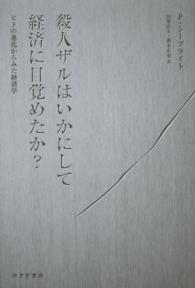 P・シーブライト
山形浩生・森本正史 訳
殺人ザルはいかにして
経済に目覚めたか?
ヒトの進化からみた経済学
みすず書房